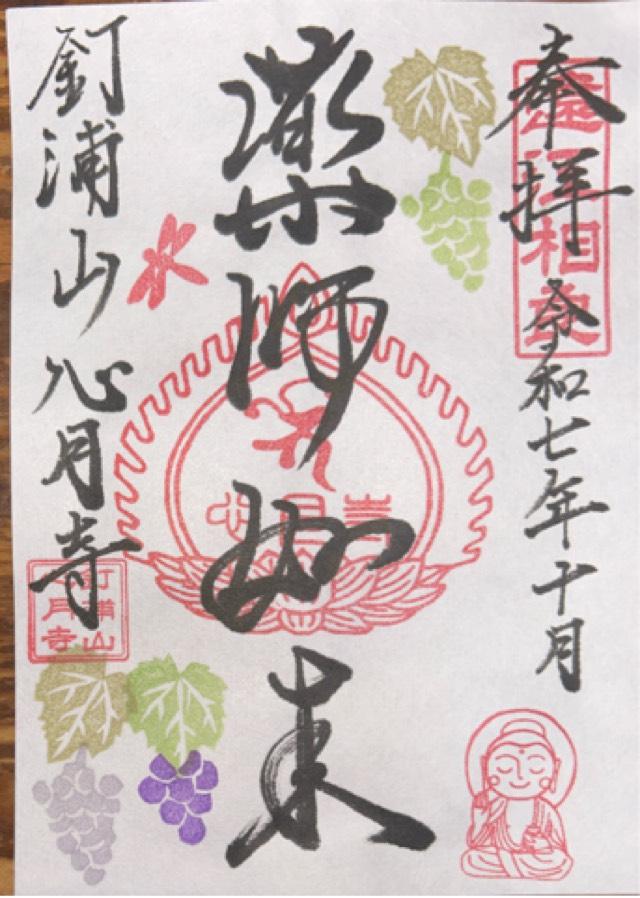 奉拝
令和七年十月
薬師如来
釘浦山心月寺
心月寺
釘浦山
心月寺